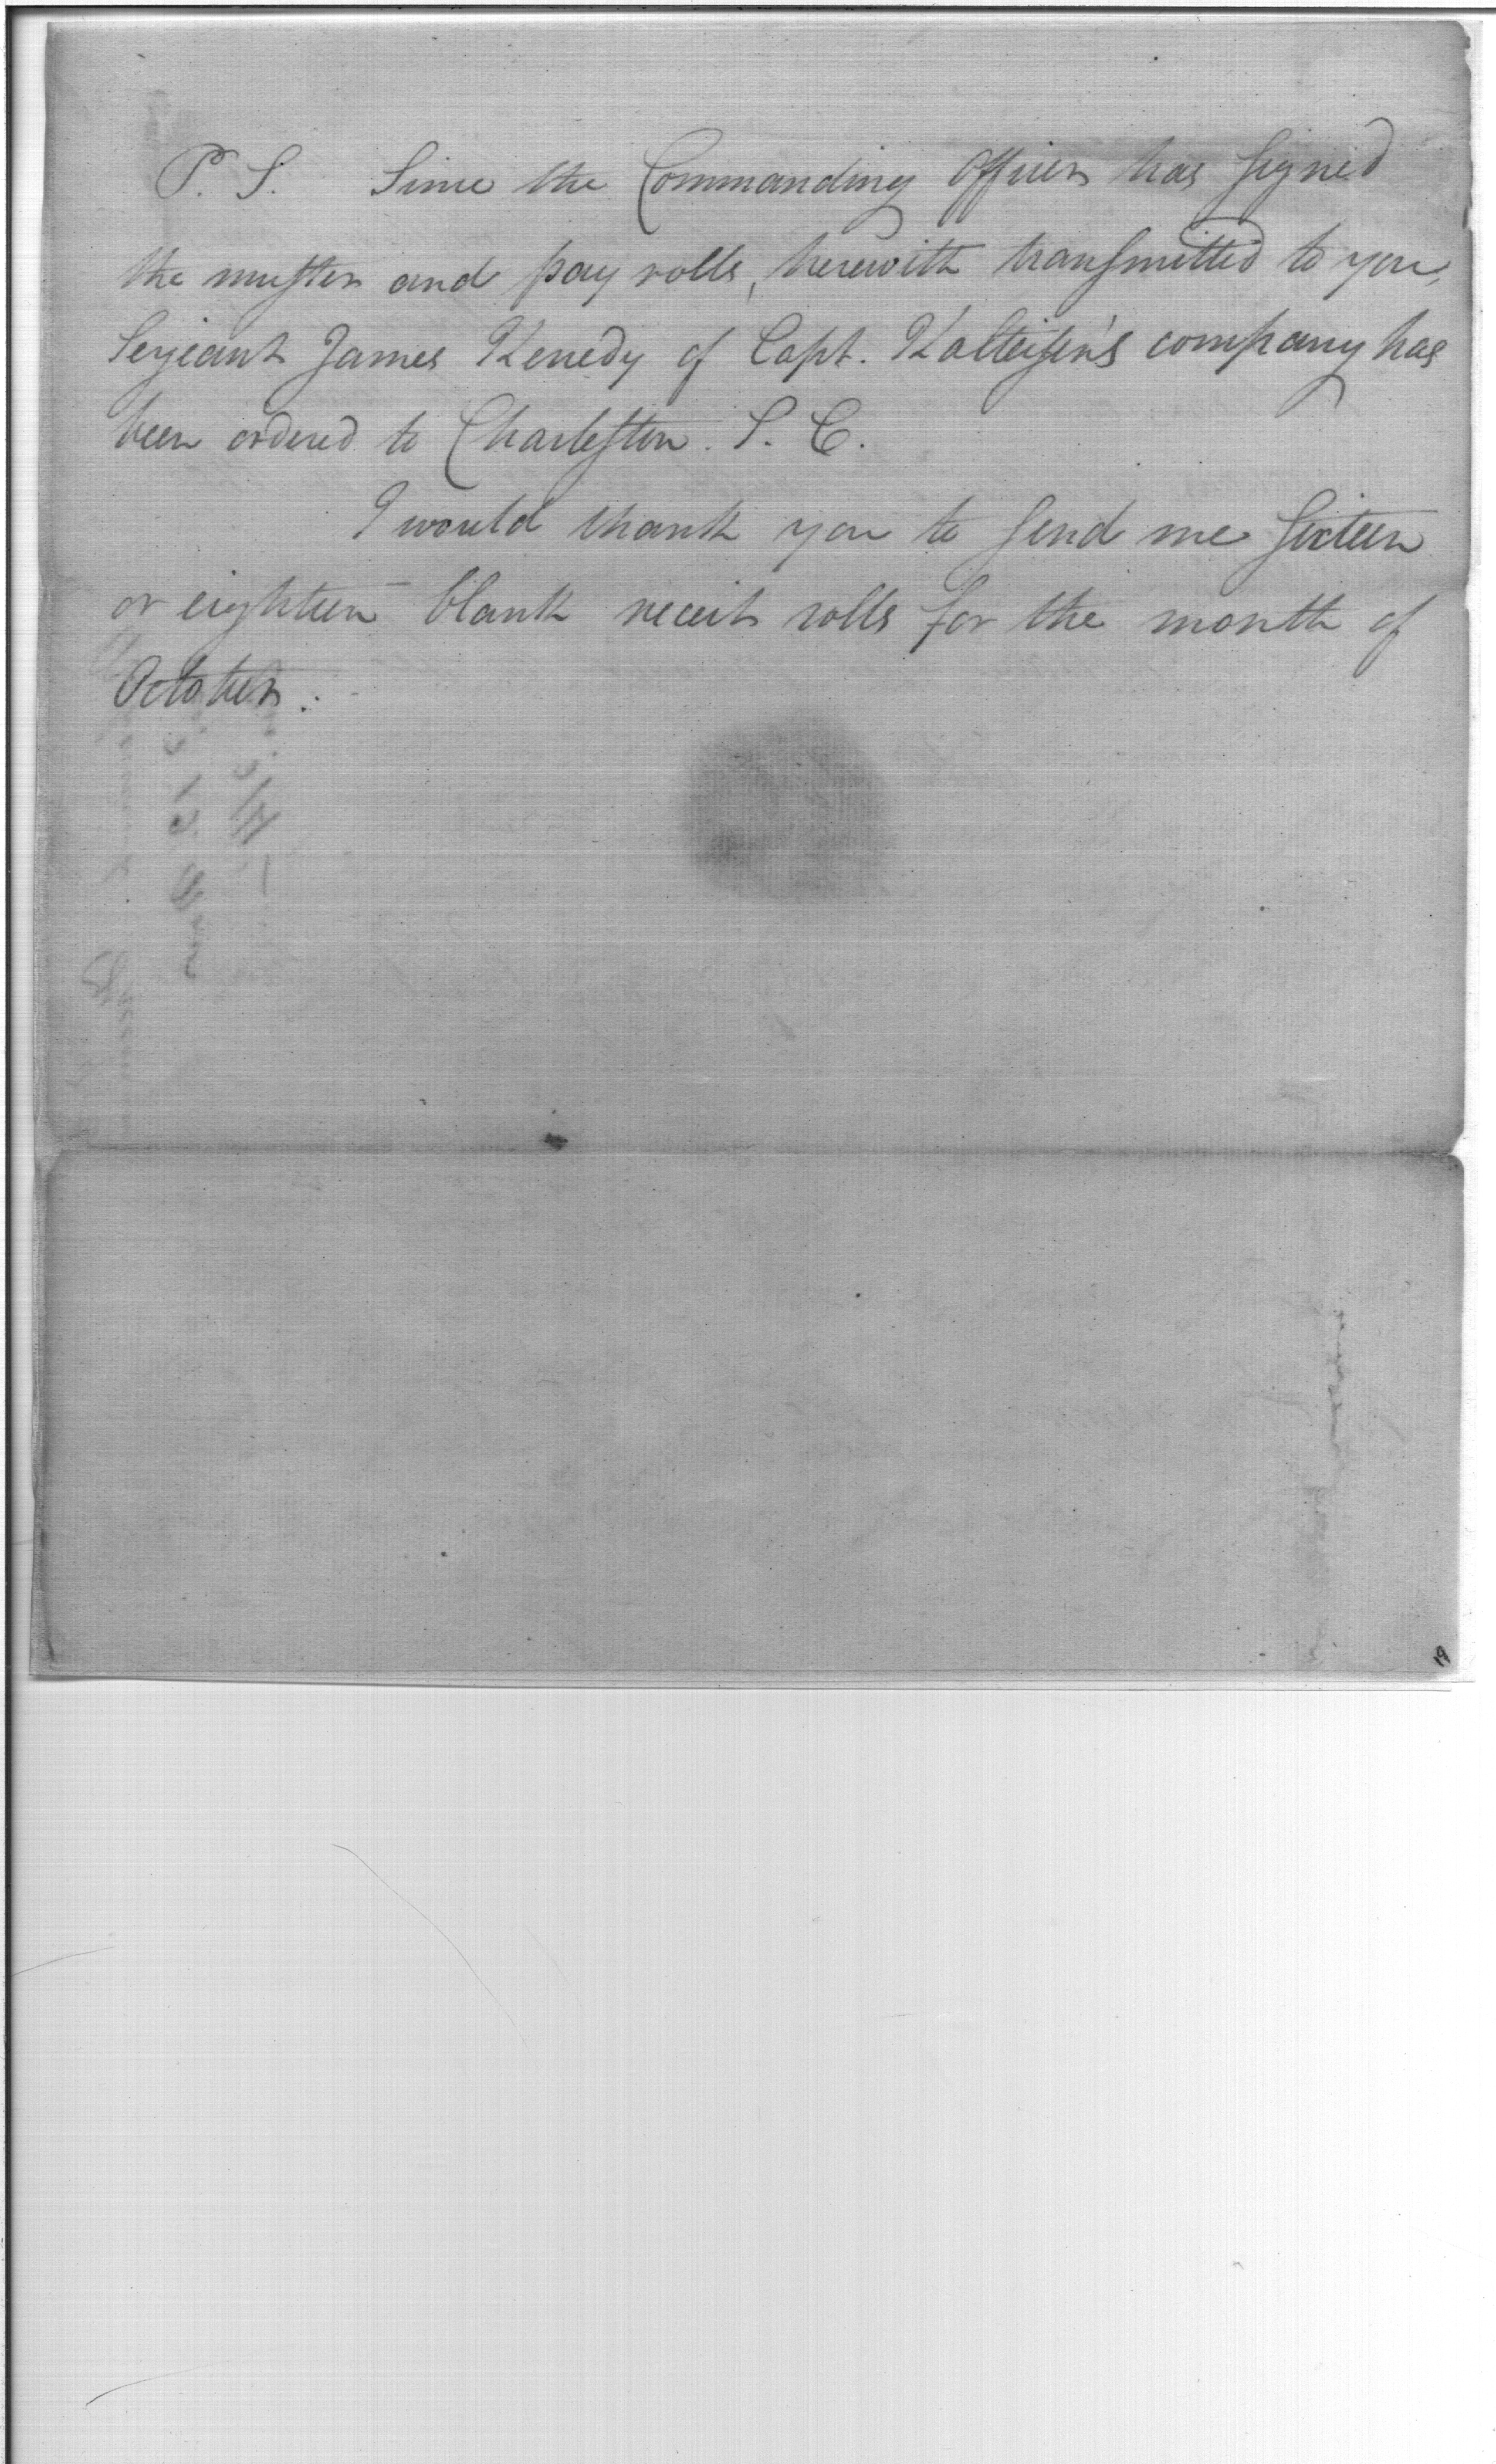 P. S. Since the Commanding Officer has signed
the muster and pay rolls, herewith transmitted to you,
Serjeant James Kenedy of Capt. Kalteisen's company has
been ordered to Charleston. S. C.
I would thank you to send me sixteen
or eighteen blank receit rolls for the month of
October.
19